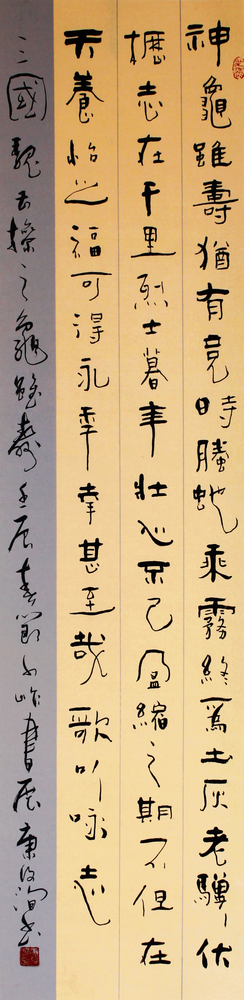 神龜雖壽猶有竟時螣蛇乘霧終為土灰老驥伏
櫪志在千里烈士暮年壯心不已盈縮之期不但在
天養怡之福可得永年幸甚至哉歌以咏志
三國魏曹操之龜雖壽壬辰春節書